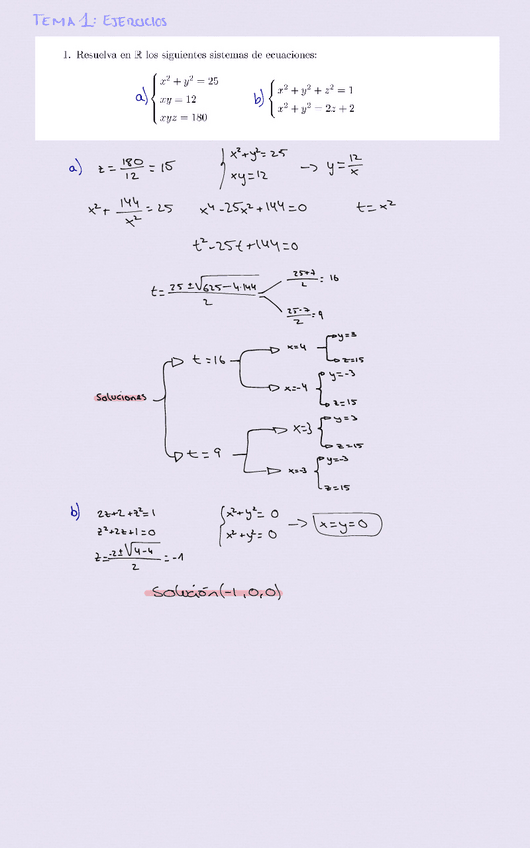 TEMA 1: EJERCICIOS
1. Resuelva en ℝ los siguientes sistemas de ecuaciones:
a) { x² + y² = 25
xy = 12
xyz = 180
b) { x² + y² + z² = 1
x² + y² − 2z + 2
a) z = 180/12 = 15 { x²+y²=25
xy=12 → y = 12/x
x² + 144/x² = 25 x⁴-25x²+144=0 t=x²
t²-25t+144=0
t = (25 ± √625-4·144)/2
(25+7)/2 = 16
(25-7)/2 = 9
Soluciones
t=16
x=4
y=3
z=15
x=-4
y=-3
z=15
t=9
x=3
y=3
z=15
x=-3
y=-3
z=15
b) 2z+2+z²=1
z²+2z+1=0
z = (-2±√4-4)/2 = -1
{ x²+y²=0
x²+y²=0 → x=y=0
Solución (-1,0,0)